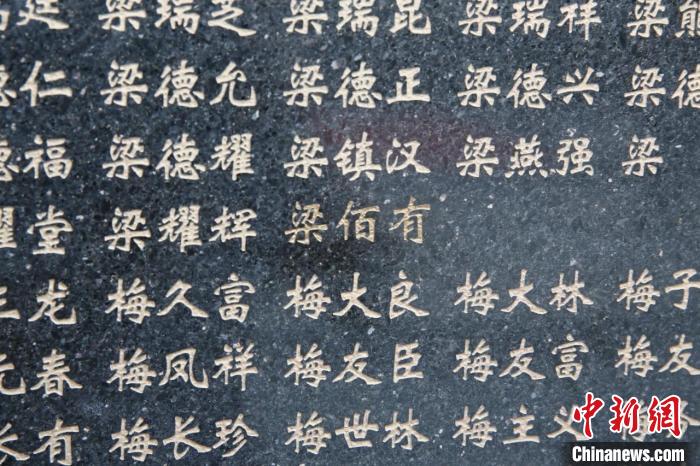 廷 梁瑞芝 梁瑞昆 梁瑞祥 梁
德仁 梁德允 梁德正 梁德兴 梁德
德福 梁德耀 梁镇汉 梁燕强 梁
耀堂 梁耀辉 梁佰有
三龙 梅久富 梅大良 梅大林 梅子
元春 梅凤祥 梅友臣 梅友富 梅友
长有 梅长珍 梅世林 梅主义 梅
中新网
Chinanews.com